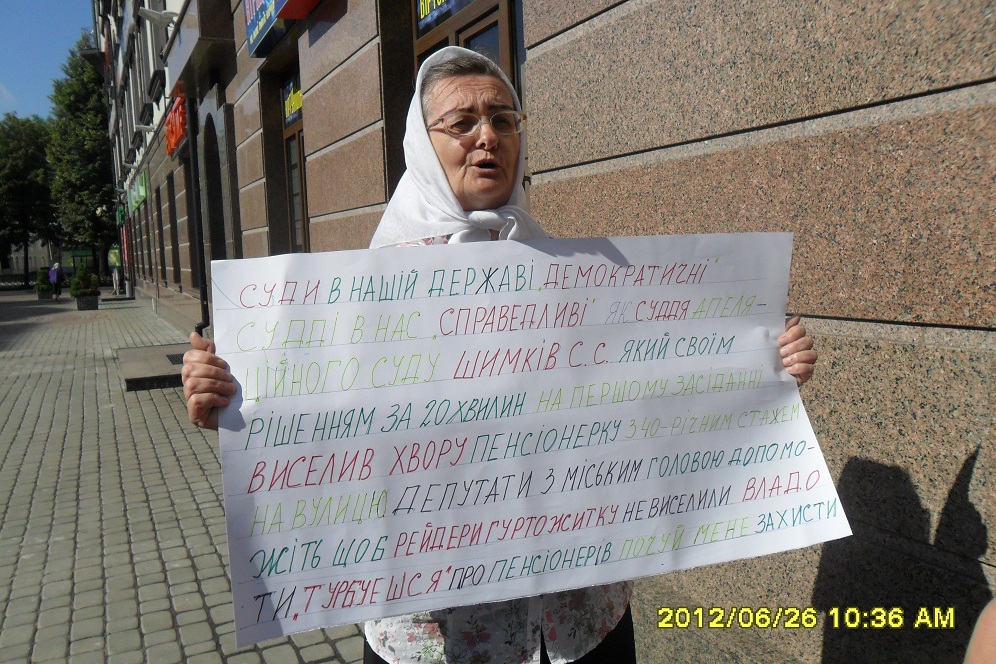 СУДИ В НАШІЙ ДЕРЖАВІ „ДЕМОКРАТИЧНІ"
СУДДІ В НАС „СПРАВЕДЛИВІ" ЯК СУДДЯ АПЕЛЯ-
ЦІЙНОГО СУДУ ШИМКІВ С.С. ЯКИЙ СВОЇМ
РІШЕННЯМ ЗА 20 ХВИЛИН НА ПЕРШОМУ ЗАСІДАННІ
ВИСЕЛИВ ХВОРУ ПЕНСІОНЕРКУ З 40-РІЧНИМ СТАЖЕМ
НА ВУЛИЦЮ ДЕПУТАТИ З МІСЬКИМ ГОЛОВОЮ ДОПОМО-
ЖІТЬ ЩОБ РЕЙДЕРИ ГУРТОЖИТКУ НЕ ВИСЕЛИЛИ ВЛАДО
ТИ „ТУРБУЄШСЯ" ПРО ПЕНСІОНЕРІВ ПОЧУЙ МЕНЕ ЗАХИСТИ
2012/06/26 10:36 AM